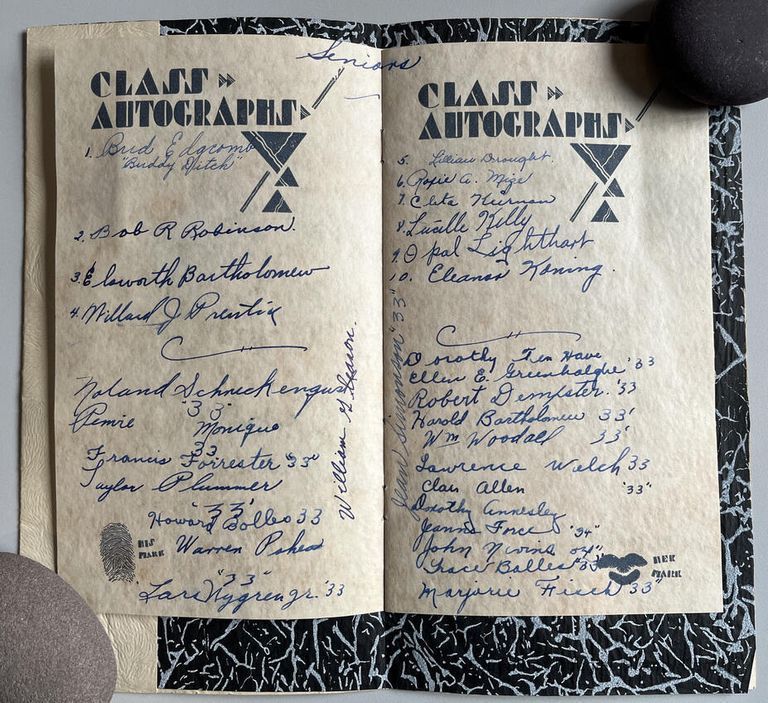 Seniors
CLASS
AUTOGRAPHS
1. Bud Edgcomb
"Buddy Ditch"
2. Bob R Robinson.
3. Elsworth Bartholomew
4. Willard J
Noland
"33"
Monique
33
Francis Forrester "33"
Taylor Plummer
"33"
Howard Bolles 33
HIS
MARK
Warren
"33"
Lars Nygren jr. '33
William G. Gleason.
CLASS
AUTOGRAPHS
5. Lillian Drought.
6. Roxie A. Mize
7. Cleta
8. Lucille Kelly
9. Opal Lighthart
10. Eleanor Koning.
Jean Simonson "33"
Dorothy Ten Have '33
Ellen E. Greenhalghe '33
Robert Dempster. '33
Harold Bartholomew 33'
Wm Woodall 33'
Lawrence Welch 33
Clair Allen "33"
Dorothy Annesley
Jeanne Force "34"
John
Grace Bolles "33"
HER
MARK
Marjorie Fisch "33"